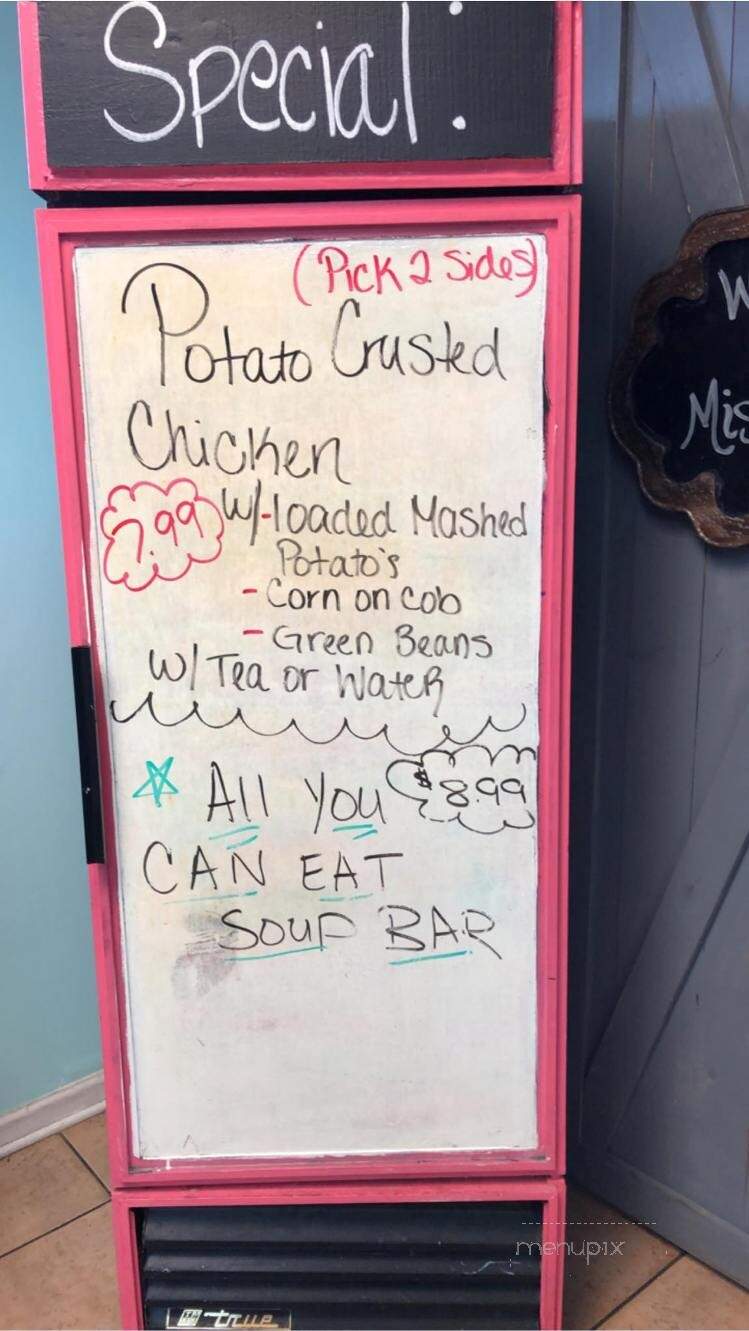 Special:
(Pick 2 Sides)
Potato Crusted
Chicken
7.99 w/-loaded Mashed
Potato's
- Corn on cob
- Green Beans
w/ Tea or Water
All You $8.99
CAN EAT
SOUP BAR
W
Mis
menupix
true